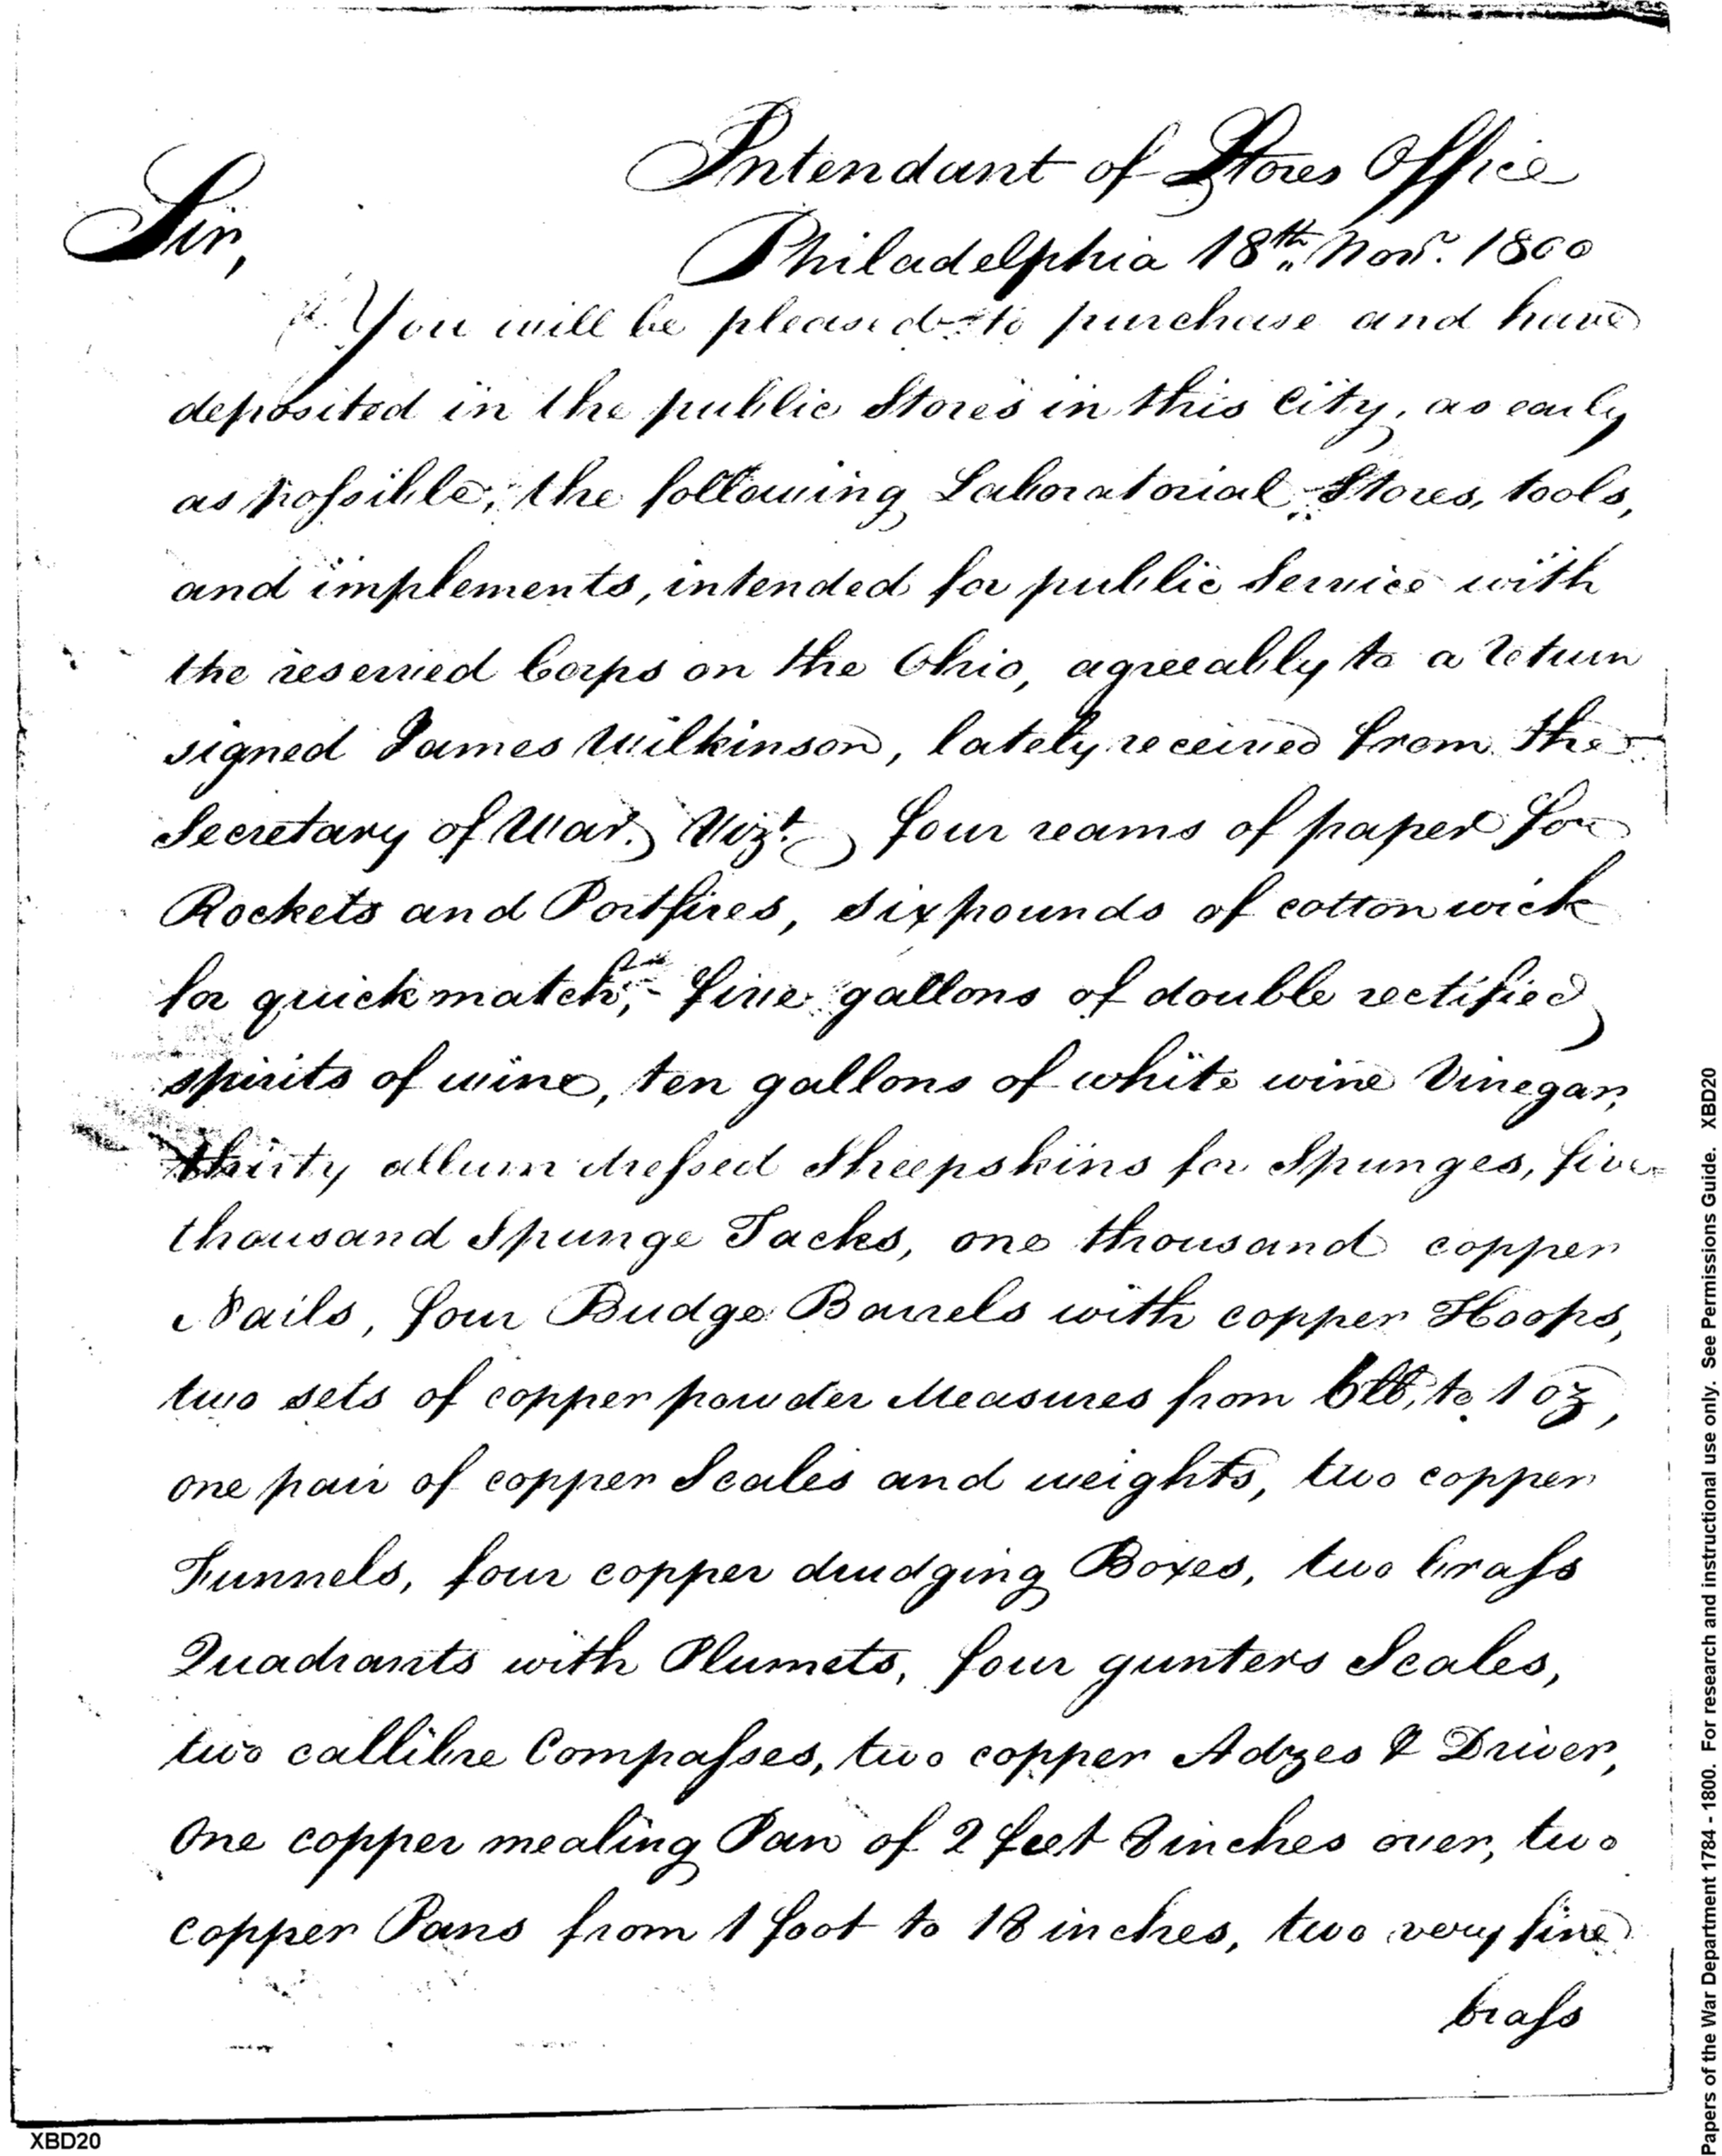 Intendant of Stores Office
Sir,
Philadelphia 18th Novr. 1800
You will be pleased to purchase and have
deposited in the public Stores in this City, as early
as possible, the following Laboratorial Stores, tools,
and implements, intended for public Service with
the reserved Corps on the Ohio, agreeably to a return
signed James Wilkinson, lately received from the
Secretary of War. Vizt. four reams of paper for
Rockets and Portfires, six pounds of cotton wick
for quickmatch, five gallons of double rectified
spirits of wine, ten gallons of white wine Vinegar,
thirty allum dressed Sheepskins for Spunges, five
thousand Spunge Tacks, one thousand copper
Nails, four Budge Barrels with copper Hoops,
two sets of copper powder Measures from 6lb, to 1 oz,
one pair of copper Scales and weights, two copper
Funnels, four copper drudging Boxes, two brass
Quadrants with Plumets, four gunters Scales,
two callibre Compasses, two copper Adzes & Driver,
One copper mealing Pan of 2 feet 8 inches over, two
copper Pans from 1 foot to 18 inches, two very fine
brass
XBD20
Papers of the War Department 1784 - 1800. For research and instructional use only. See Permissions Guide. XBD20